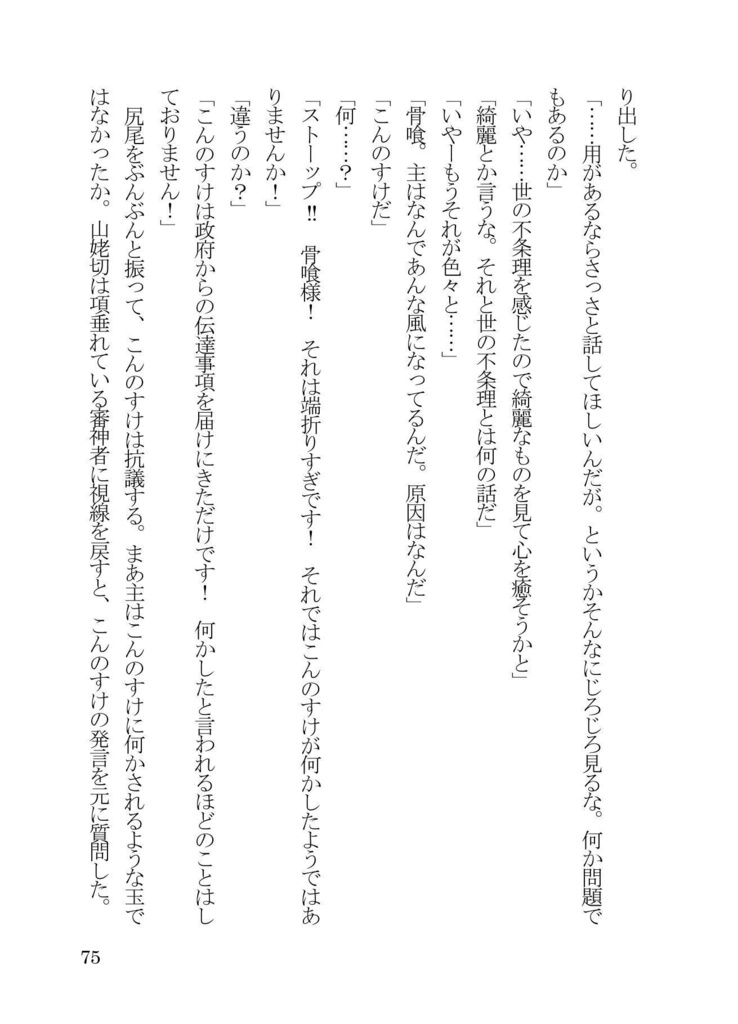 り出した。
「……用があるならさっさと話してほしいんだが。というかそんなにじろじろ見るな。何か問題で
もあるのか」
「いや……世の不条理を感じたので綺麗なものを見て心を癒そうかと」
「綺麗とか言うな。それと世の不条理とは何の話だ」
「いやーもうそれが色々と……」
「骨喰。主はなんであんな風になってるんだ。原因はなんだ」
「こんのすけだ」
「何……？」
「ストーップ‼　骨喰様！　それは端折りすぎです！　それではこんのすけが何かしたようではあ
りませんか！」
「違うのか？」
「こんのすけは政府からの伝達事項を届けにきただけです！　何かしたと言われるほどのことはし
ておりません！」
　尻尾をぶんぶんと振って、こんのすけは抗議する。まあ主はこんのすけに何かされるような玉で
はなかったか。山姥切は項垂れている審神者に視線を戻すと、こんのすけの発言を元に質問した。
75